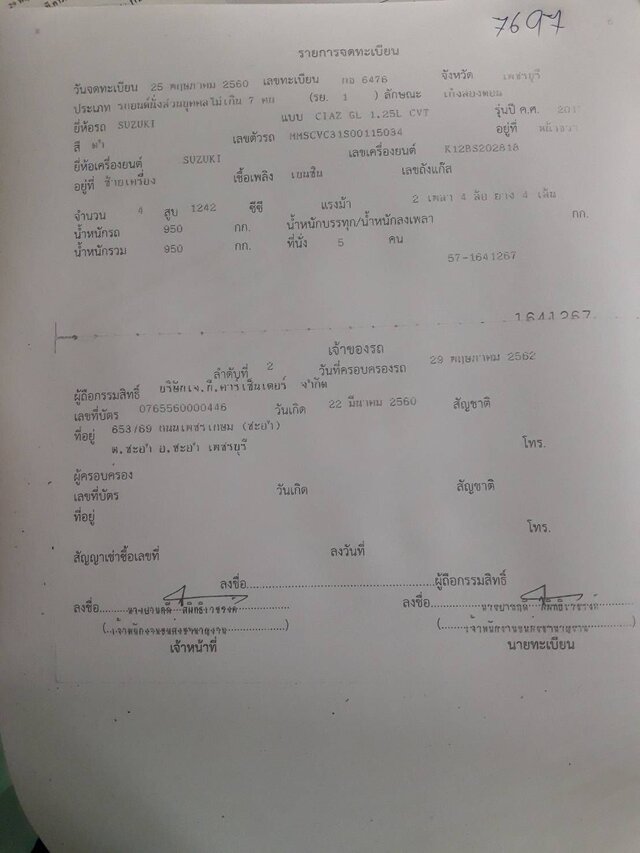 7697
รายการจดทะเบียน
วันจดทะเบียน 25 พฤษภาคม 2560 เลขทะเบียน กอ 6476 จังหวัด เพชรบุรี
ประเภท รถยนต์นั่งส่วนบุคคลไม่เกิน 7 คน (รย. 1 ) ลักษณะ เก๋งสองตอน
ยี่ห้อรถ SUZUKI แบบ CIAZ GL 1.25L CVT รุ่นปี ค.ศ.
สี ดำ เลขตัวรถ MMSCVC31S00115034 อยู่ที่
ยี่ห้อเครื่องยนต์ SUZUKI เลขเครื่องยนต์ K12BS202818
อยู่ที่ ซ้ายเครื่อง เชื้อเพลิง เบนซิน เลขถังแก๊ส
จำนวน 4 สูบ 1242 ซีซี แรงม้า 2 เพลา 4 ล้อ ยาง 4 เส้น
น้ำหนักรถ 950 กก. น้ำหนักบรรทุก/น้ำหนักลงเพลา กก.
น้ำหนักรวม 950 กก. ที่นั่ง 5 คน
57-1641267
1641267
เจ้าของรถ
ลำดับที่ 2 วันที่ครอบครองรถ 29 พฤษภาคม 2562
ผู้ถือกรรมสิทธิ์ บริษัทเจ.ที.คาร์เซ็นเตอร์ จำกัด
เลขที่บัตร 0765560000446 วันเกิด 22 มีนาคม 2560 สัญชาติ
ที่อยู่ 653/69 ถนนเพชรเกษม (ชะอำ)
ต.ชะอำ อ.ชะอำ เพชรบุรี โทร.
ผู้ครอบครอง
เลขที่บัตร วันเกิด สัญชาติ
ที่อยู่
โทร.
สัญญาเช่าซื้อเลขที่ ลงวันที่
ลงชื่อ ผู้ถือกรรมสิทธิ์
ลงชื่อ ลงชื่อ
(เจ้าพนักงานขนส่งชำนาญงาน) (เจ้าพนักงานขนส่งชำนาญงาน)
เจ้าหน้าที่ นายทะเบียน